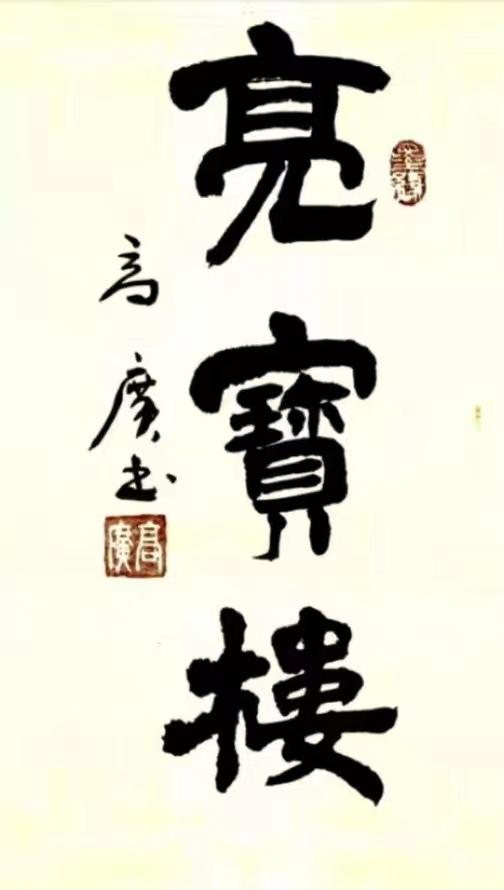 亮寶樓
高廣书
高廣